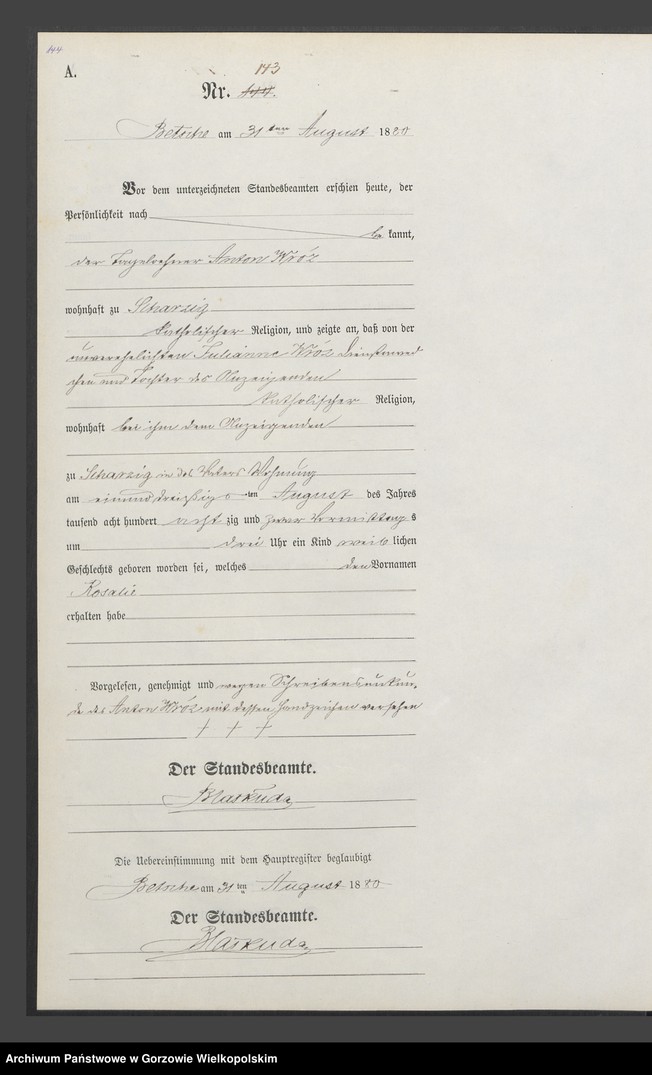 144
A.
143
Nr. 144.
Betsche am 31ten August 1880
Vor dem unterzeichneten Standesbeamten erschien heute, der
Persönlichkeit nach
be kannt,
der Tagelöhner Anton Wróz
wohnhaft zu Scharzig
katholischer Religion, und zeigte an, daß von der
unverehelichten Julianne Wróz Dienstmäd
chen und Tochter des Anzeigenden
katholischer Religion,
wohnhaft bei ihm dem Anzeigenden
zu Scharzig in des Vaters Wohnung
am einunddreißigsten August des Jahres
tausend acht hundert acht zig und zwar Vormittags
um drei Uhr ein Kind weib lichen
Geschlechts geboren worden sei, welches den Vornamen
Rosalie
erhalten habe
Vorgelesen, genehmigt und wegen Schreibensunkun-
de des Anton Wróz mit dessen Handzeichen versehen
+ + +
Der Standesbeamte.
Blaskuda
Die Uebereinstimmung mit dem Hauptregister beglaubigt
Betsche am 31ten August 1880
Der Standesbeamte.
Blaskuda
Archiwum Państwowe w Gorzowie Wielkopolskim